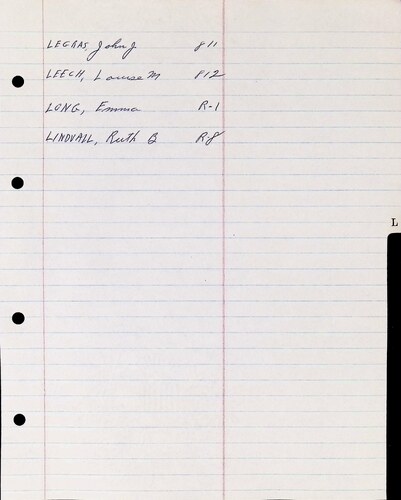 LEGRAS, John J P11
LEECH, Louise M P12
LONG, Emma R-1
LINDVALL, Ruth B R-8
L